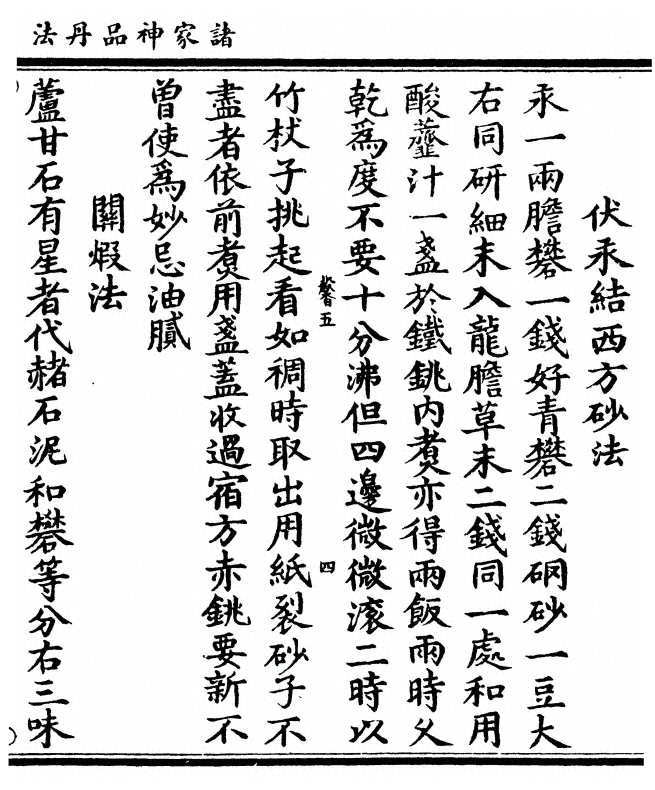 諸家神品丹法
伏汞結西方砂法
汞一兩膽礬一錢好青礬二錢硇砂一豆大
右同研細末入龍膽草末二錢同一處和用
酸虀汁一盞於鐵銚內煮亦得兩飯兩時乆
乾爲度不要十分沸但四邊微微滚二時以
磬五
四
竹杖子挑起看如稠時取出用紙裂砂子不
盡者依前煑用盞蓋收過宿方赤銚要新不
曾使爲妙忌油膩
關煆法
蘆甘石有星者代赭石泥和礬等分右三味